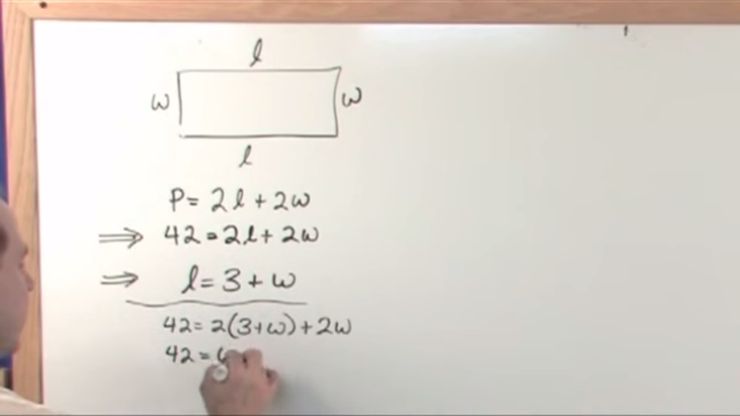 l
w w
l
P = 2l + 2w
⇒ 42 = 2l + 2w
⇒ l = 3 + w
42 = 2(3+w) + 2w
42 =